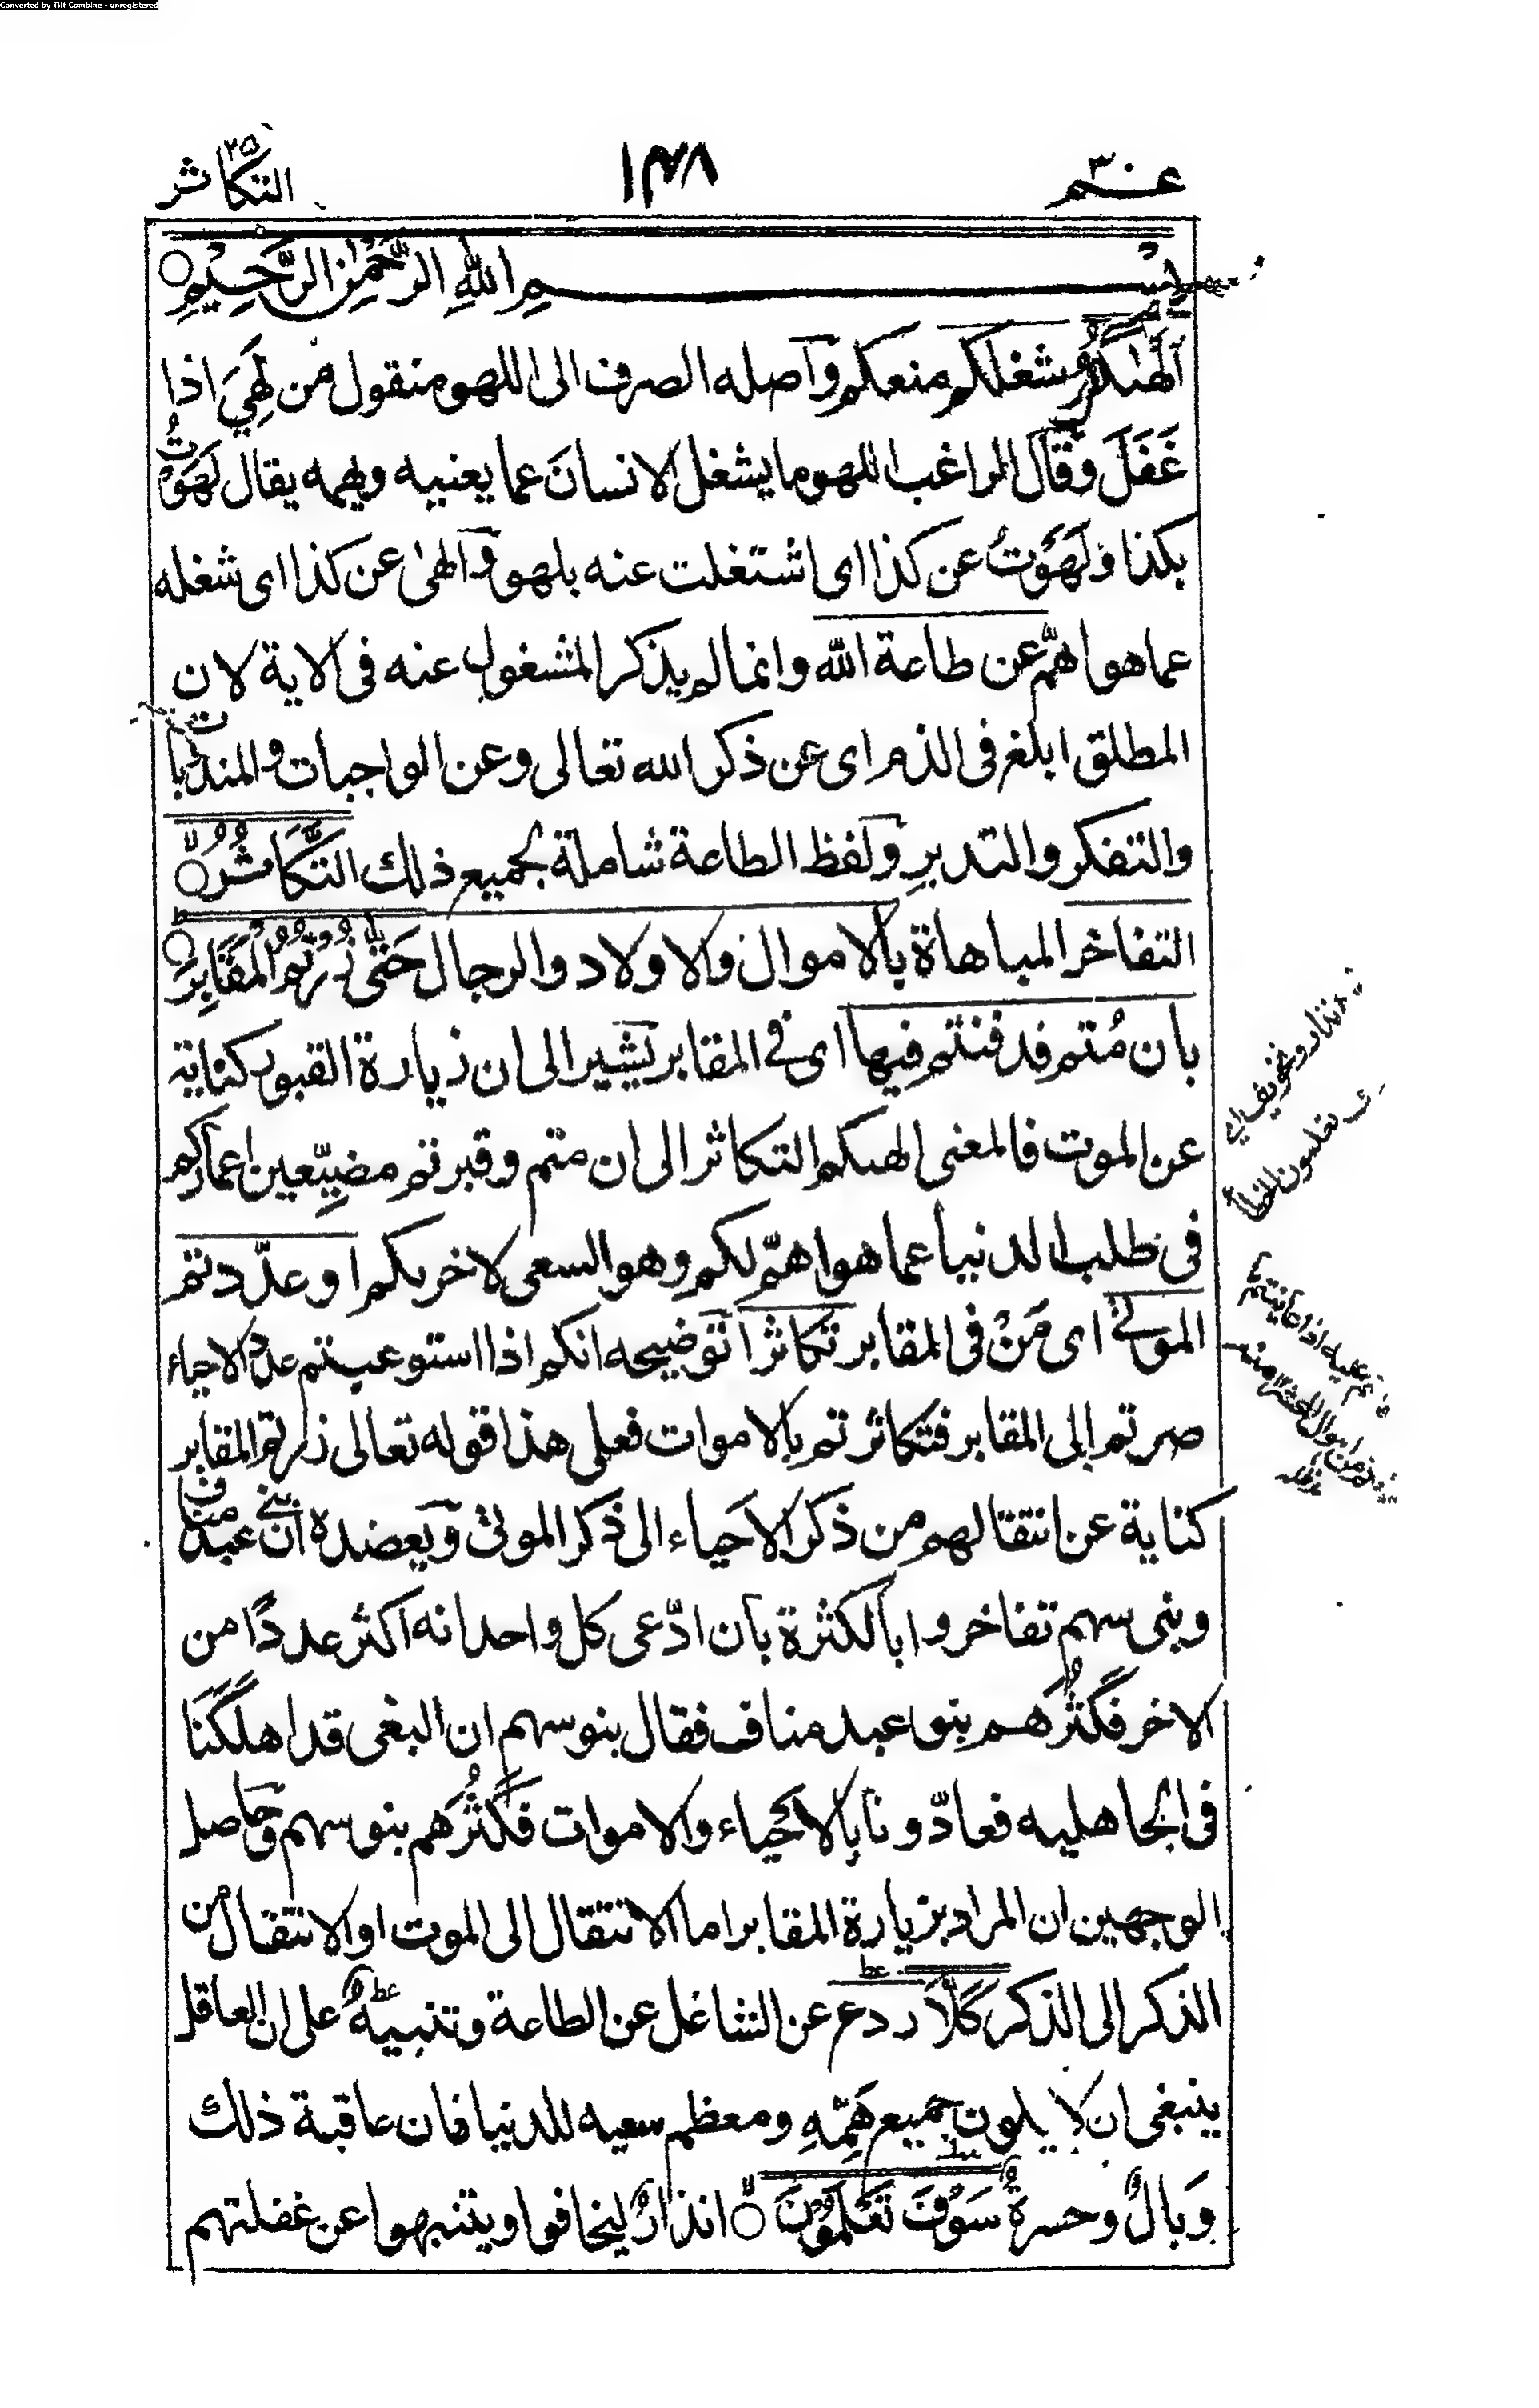 Converted by Tiff Combine - unregistered
عم ٣٠
١٣٨
التكاثر ٢٥
بسم اللهِ الرَّحْمٰنِ الرَّحِيْمِ
اَلْهٰىكُمُ شغلكم منعكم وآصله الصرف الى اللهو منقول من لَهِيَ اذا
غَفَلَ وقال الراغب اللهو ما يشغل الانسانَ عما يعنيه ويهمه يقال لَهَوْتُ
بكذا ولَهَوتُ عن كذا اى اشتغلت عنه بلهو والهىٰ عن كذا اى شغله
عما هو اهمّ عن طاعة الله وانما لم يذكر المشغول عنه فى الاية لان
المطلق ابلغ فى الذم اى عن ذكر الله تعالى وعن الواجبات والمندوبات
والتفكر والتدبر ولفظ الطاعة شاملة لجميع ذلك التَّكَاثُرُ
التفاخر المباهاة بالاموال والاولاد والرجال حَتّٰى زُرْتُمُ الْمَقَابِرَ
بان مُتم فدفنتم فيها اى فى المقابر يشير الى ان زيارة القبور كناية
عن الموت فالمعنى الهىكم التكاثر الى ان متم وقبرتم مضيّعين اعماركم
فى طلب الدنيا عما هو اهمّ لكم وهو السعى لاخرىكم او عدّدتم
الموتٰى اى مَنْ فى المقابر تكاثرا توضيحه انكم اذا استوعبتم عدد الاحياء
صرتم الى المقابر فتكاثرتم بالاموات فعلى هذا قوله تعالى زرتم المقابر
كناية عن انتقالهم من ذكر الاحياء الى ذكر الموتى ويعضده ان بنى عبد مناف
وبنى سهم تفاخروا بالكثرة بان ادّعى كل واحد انه اكثر عددًا من
الاخر فكَثُرَهم بنو عبد مناف فقال بنو سهم ان البغى قد اهلكَنَا
فى الجاهليه فعادّونا بالاحياء والاموات فكَثُرَهم بنو سهم وحاصل
الوجهين ان المراد بزيارة المقابر اما الانتقال الى الموت او الانتقال من
الذكر الى الذكر كَلَّا ردع عن التشاغل عن الطاعة وتنبيهٌ على ان العاقل
ينبغى ان لا يكون جميع هَمِّهِ ومعظم سعيه للدنيا فان عاقبة ذلك
وَبالٌ وحسرةٌ سَوْفَ تَعْلَمُوْنَ انذارٌ ليخافوا ويتنبهوا عن غفلتهم